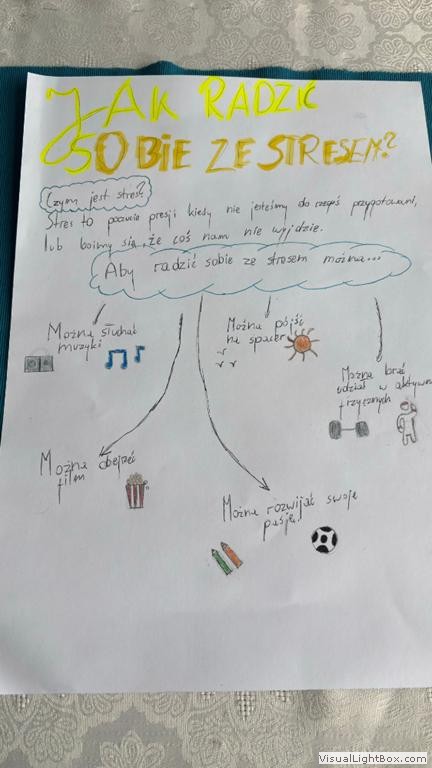 JAK RADZIĆ
SOBIE ZE STRESEM?
Czym jest stres?
Stres to poczucie presji kiedy nie jesteśmy do czegoś przygotowani,
lub boimy się, że coś nam nie wyjdzie.
Aby radzić sobie ze stresem można...
Można słuchać
muzyki
Można pójść
na spacer
Można brać
udział w aktywn
fizycznych
Można obejrzeć
film
Można rozwijać swoje
pasje.
VisualLightBox.com